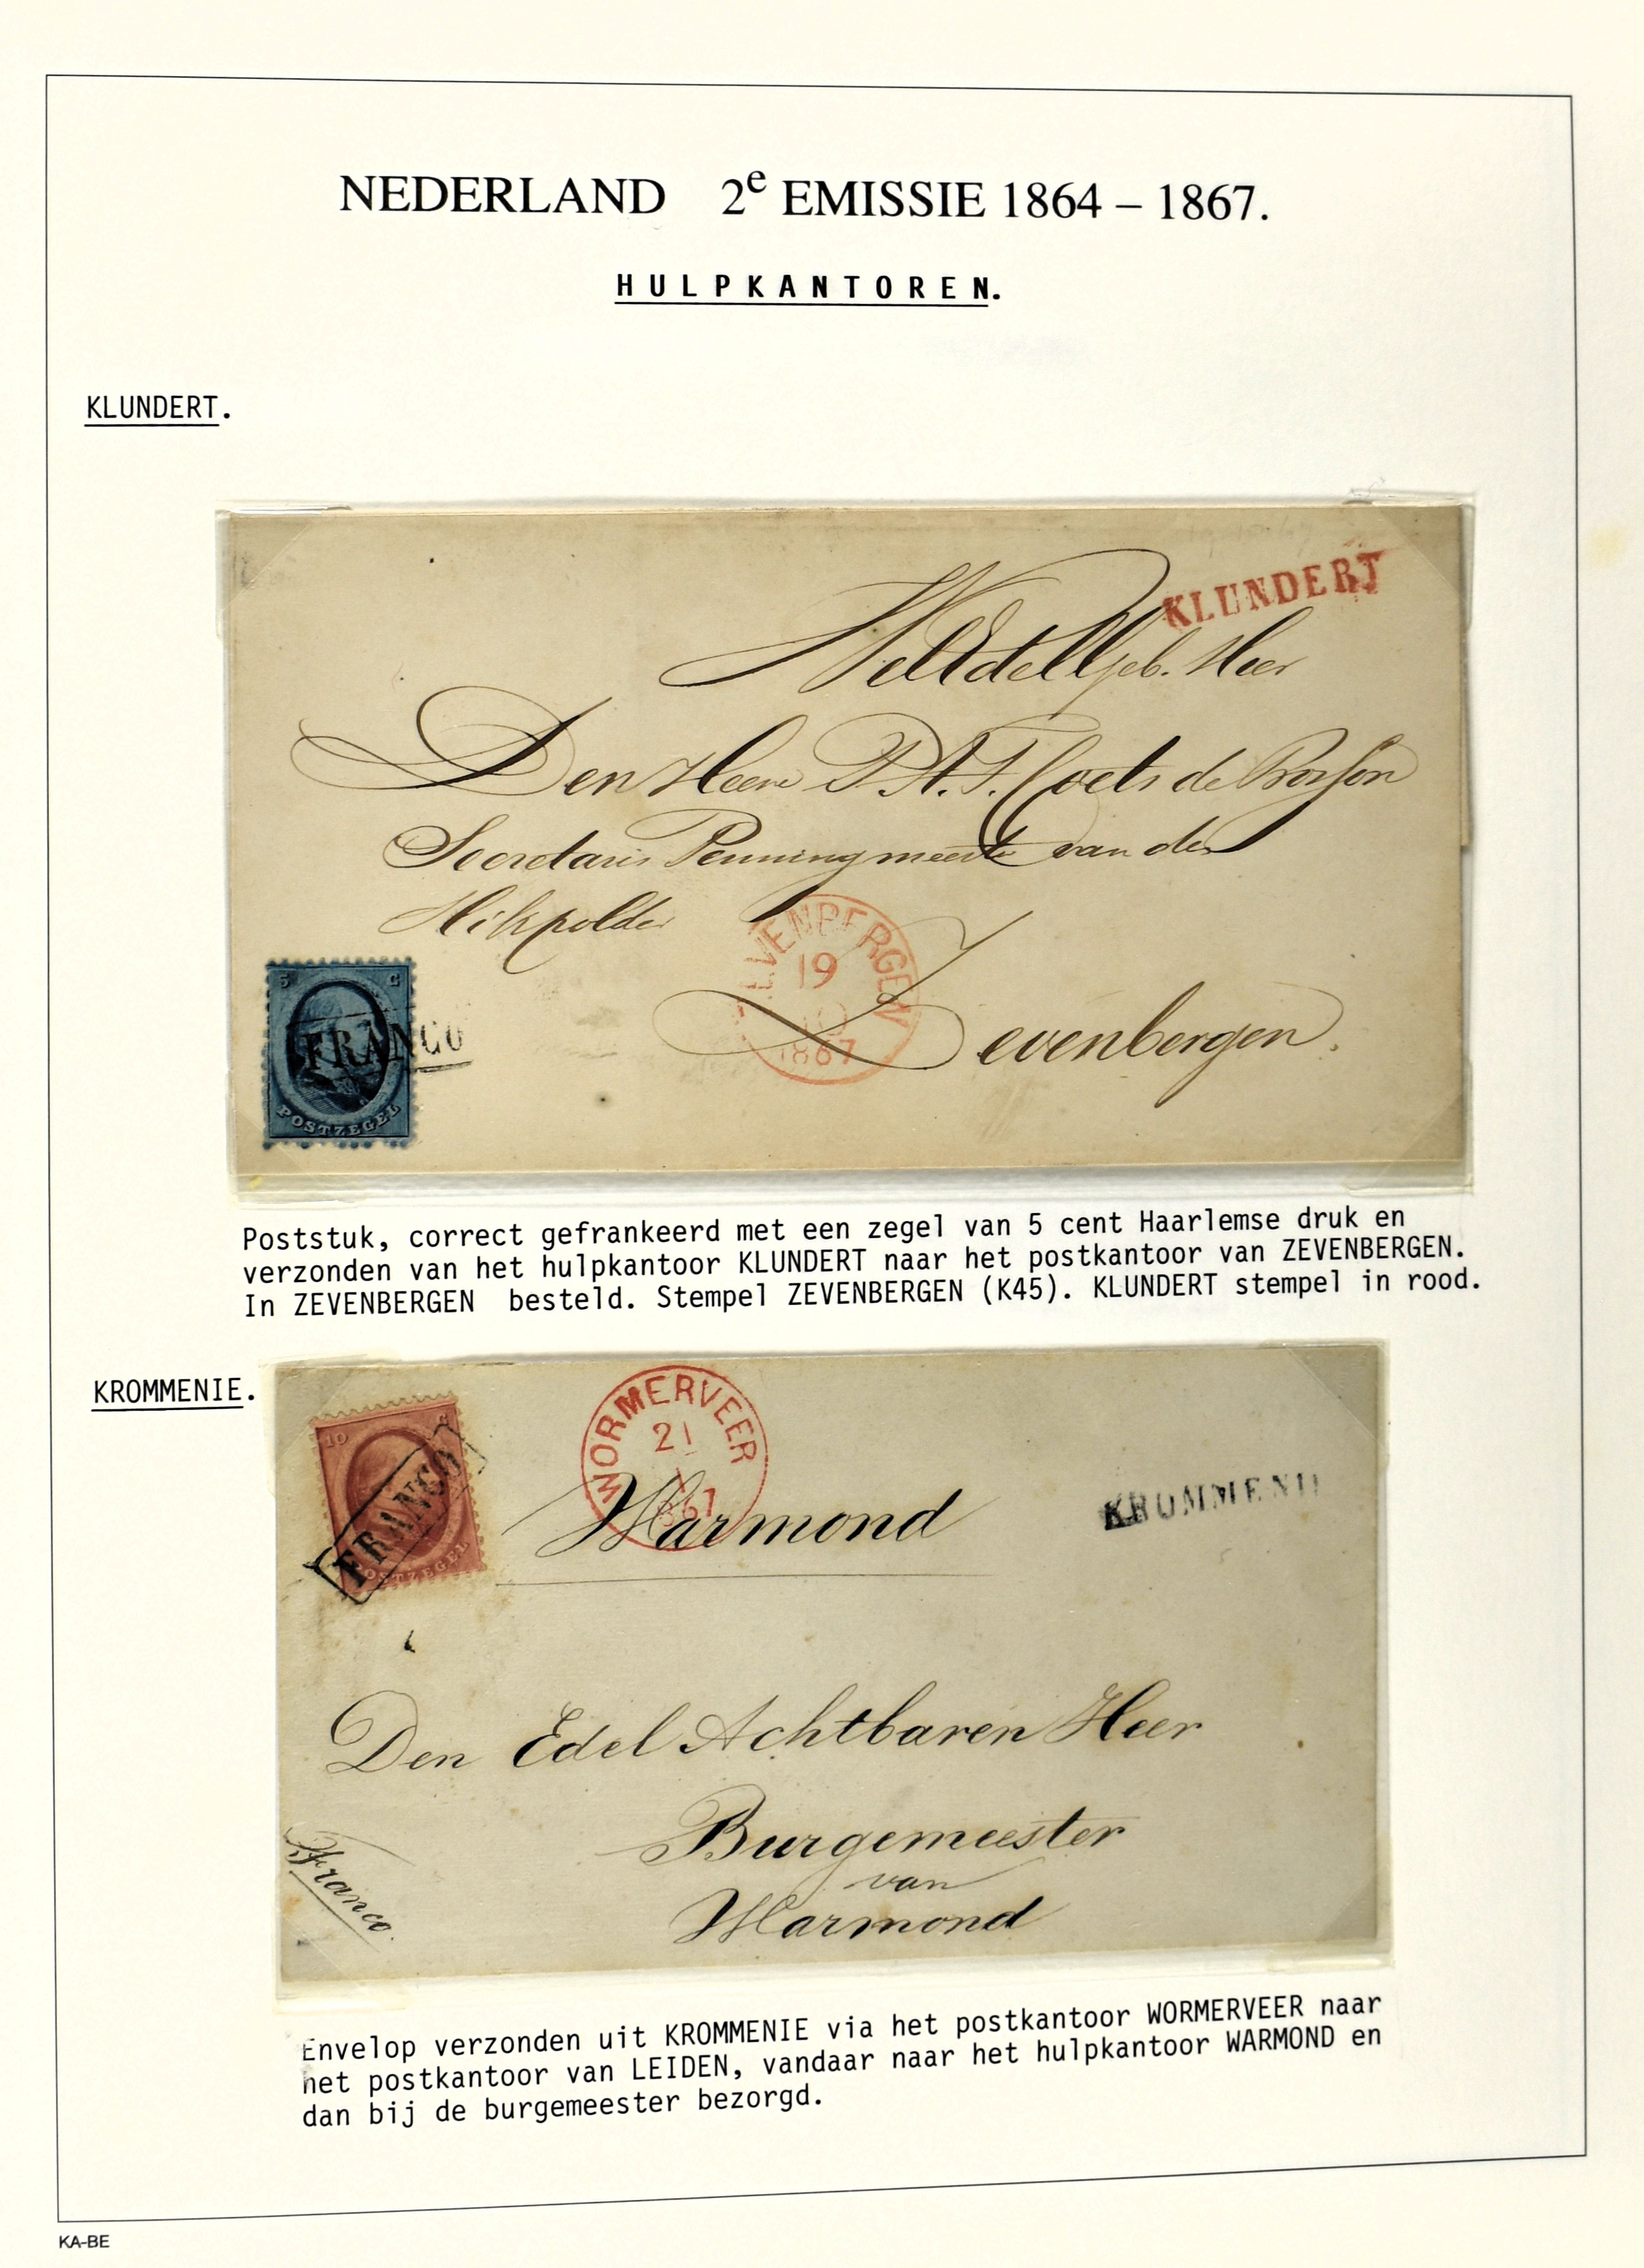 NEDERLAND 2e EMISSIE 1864 – 1867.
HULPKANTOREN.
KLUNDERT.
KLUNDERT
WelEdelGeb. Heer
Den Heere P. A. F. Coets de Bosson
Secretaris Penningmeester van den
polder
ZEVENBERGEN
19
10
1867
Zevenbergen.
5 C
FRANCO
POSTZEGEL
Poststuk, correct gefrankeerd met een zegel van 5 cent Haarlemse druk en
verzonden van het hulpkantoor KLUNDERT naar het postkantoor van ZEVENBERGEN.
In ZEVENBERGEN besteld. Stempel ZEVENBERGEN (K45). KLUNDERT stempel in rood.
KROMMENIE.
10 C
FRANCO
POSTZEGEL
WORMERVEER
21
1
1867
KROMMENIE
Warmond
Den Edel Achtbaren Heer
Burgemeester
van
Warmond
Franco.
Envelop verzonden uit KROMMENIE via het postkantoor WORMERVEER naar
het postkantoor van LEIDEN, vandaar naar het hulpkantoor WARMOND en
dan bij de burgemeester bezorgd.
KA-BE